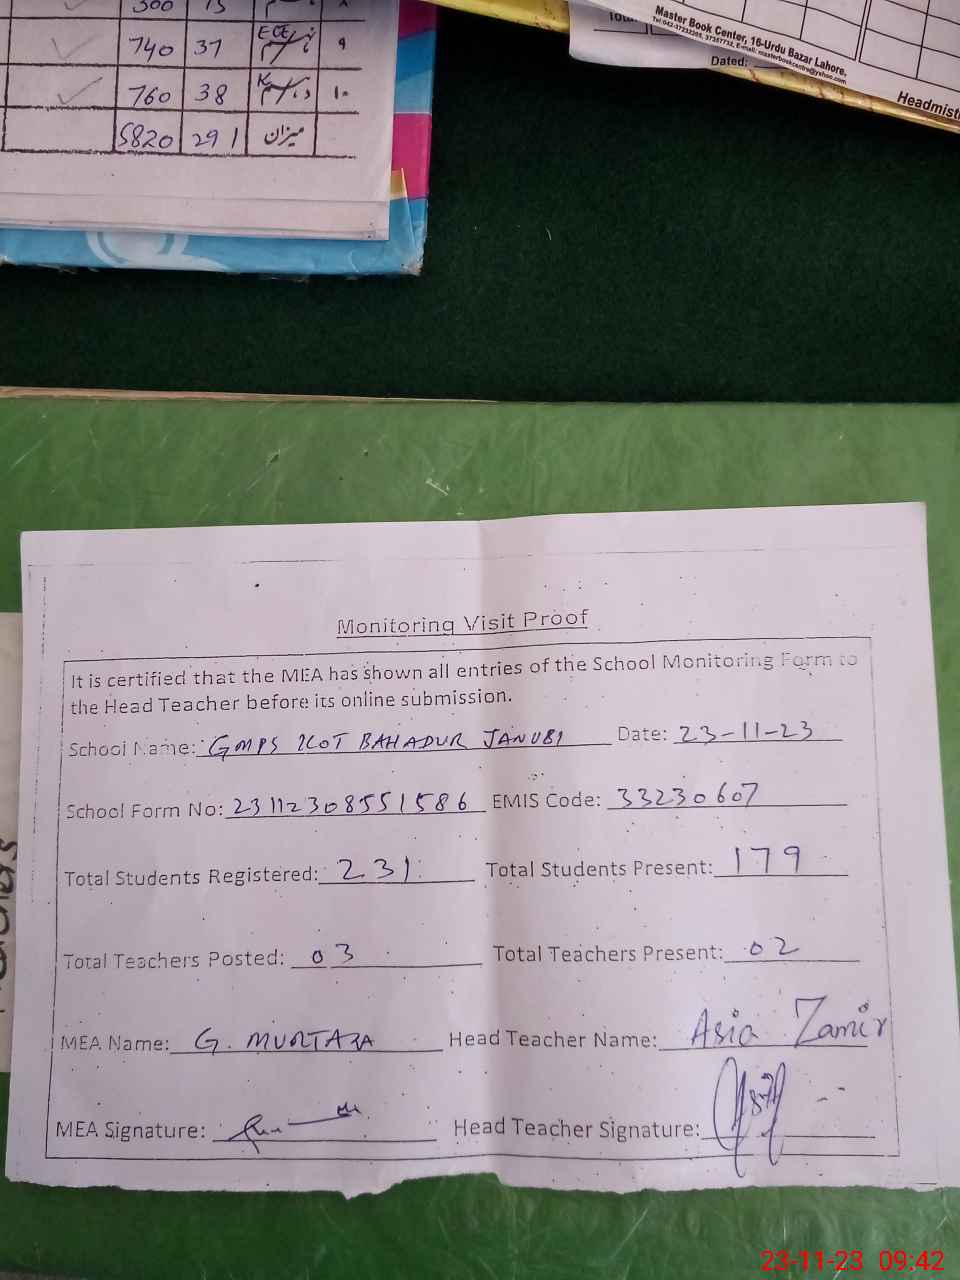 300 15
740 37 ECE ۹
760 38 K ۱۰
5820 291 میزان
Master Book Center, 16-Urdu Bazar Lahore.
Dated:
Headmist
Monitoring Visit Proof
It is certified that the MEA has shown all entries of the School Monitoring Form to
the Head Teacher before its online submission.
School Name: GMPS KOT BAHADUR JANUBI Date: 23-11-23
School Form No: 23112308551586 EMIS Code: 33230607
Total Students Registered: 231 Total Students Present: 179
Total Teachers Posted: 03 Total Teachers Present: 02
MEA Name: G. MURTAZA Head Teacher Name: Asia Zamir
MEA Signature: Head Teacher Signature:
23-11-23 09:42